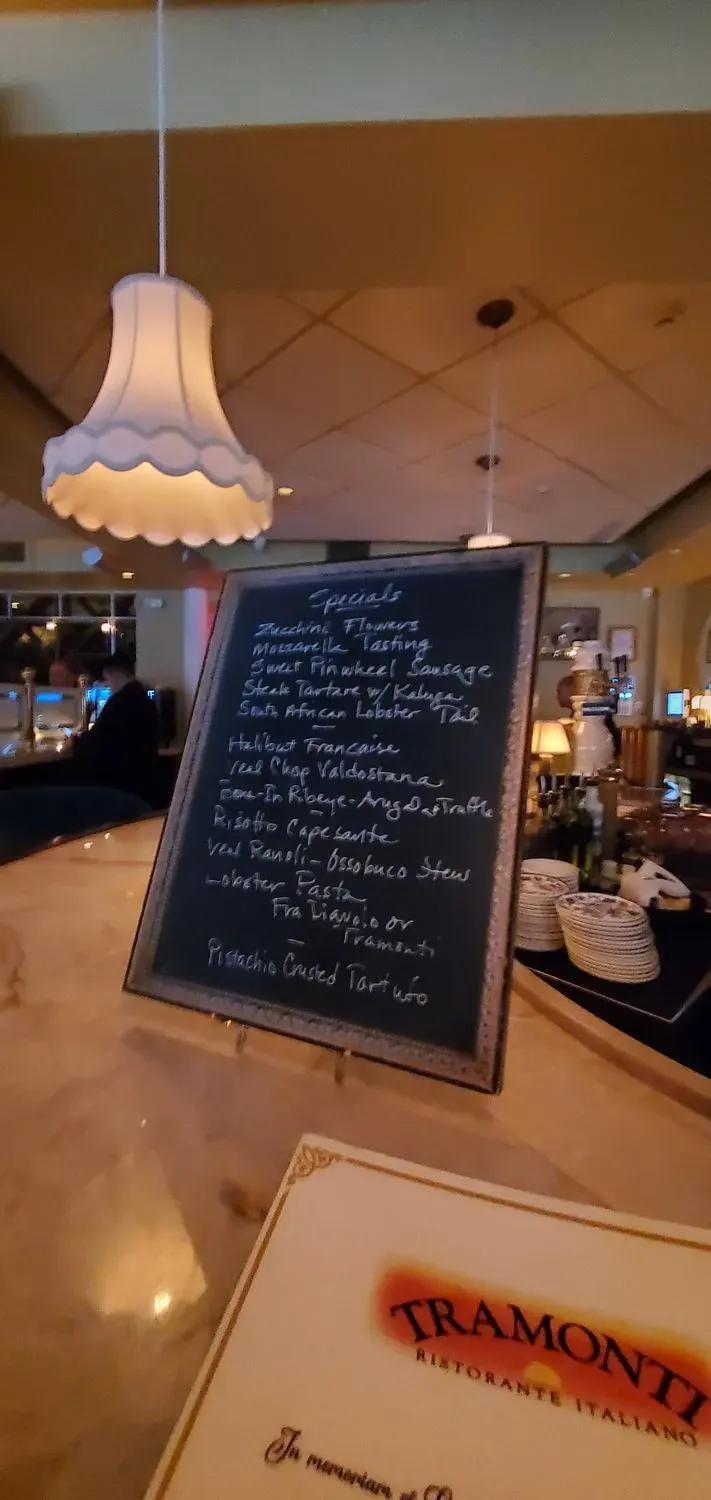 Specials
Zucchini Flowers
Mozzarella Tasting
Sweet Pinwheel Sausage
Steak Tartare w/ Kaluga
South African Lobster Tail
Halibut Francaise
Veal Chop Valdostana
Bone-In Ribeye - Arugula + Truffle
Risotto Capesante
Veal Ravioli - Ossobuco Stew
Lobster Pasta
Fra Diavolo or
Tramonti
Pistachio Crusted Tartufo
TRAMONTI
RISTORANTE ITALIANO
In memoriam of